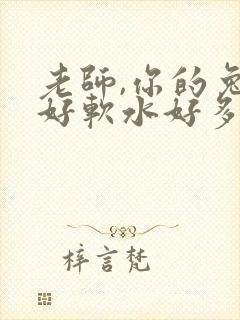 老師,你的兔
好軟水好多
梓言梵